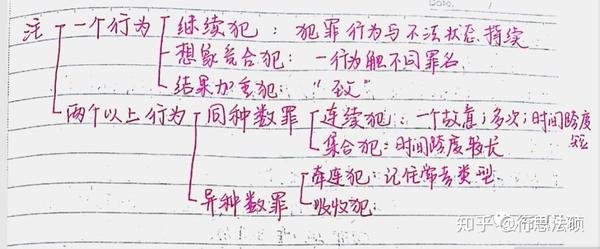 注 一个行为 继续犯：犯罪行为与不法状态持续
想象竞合犯：一行为触不同罪名
结果加重犯："致"
两个以上行为 同种数罪 连续犯：一个故意；多次；时间跨度短
集合犯：时间跨度较长
异种数罪 牵连犯：记住常考类型
吸收犯
知乎 @衍思法硕